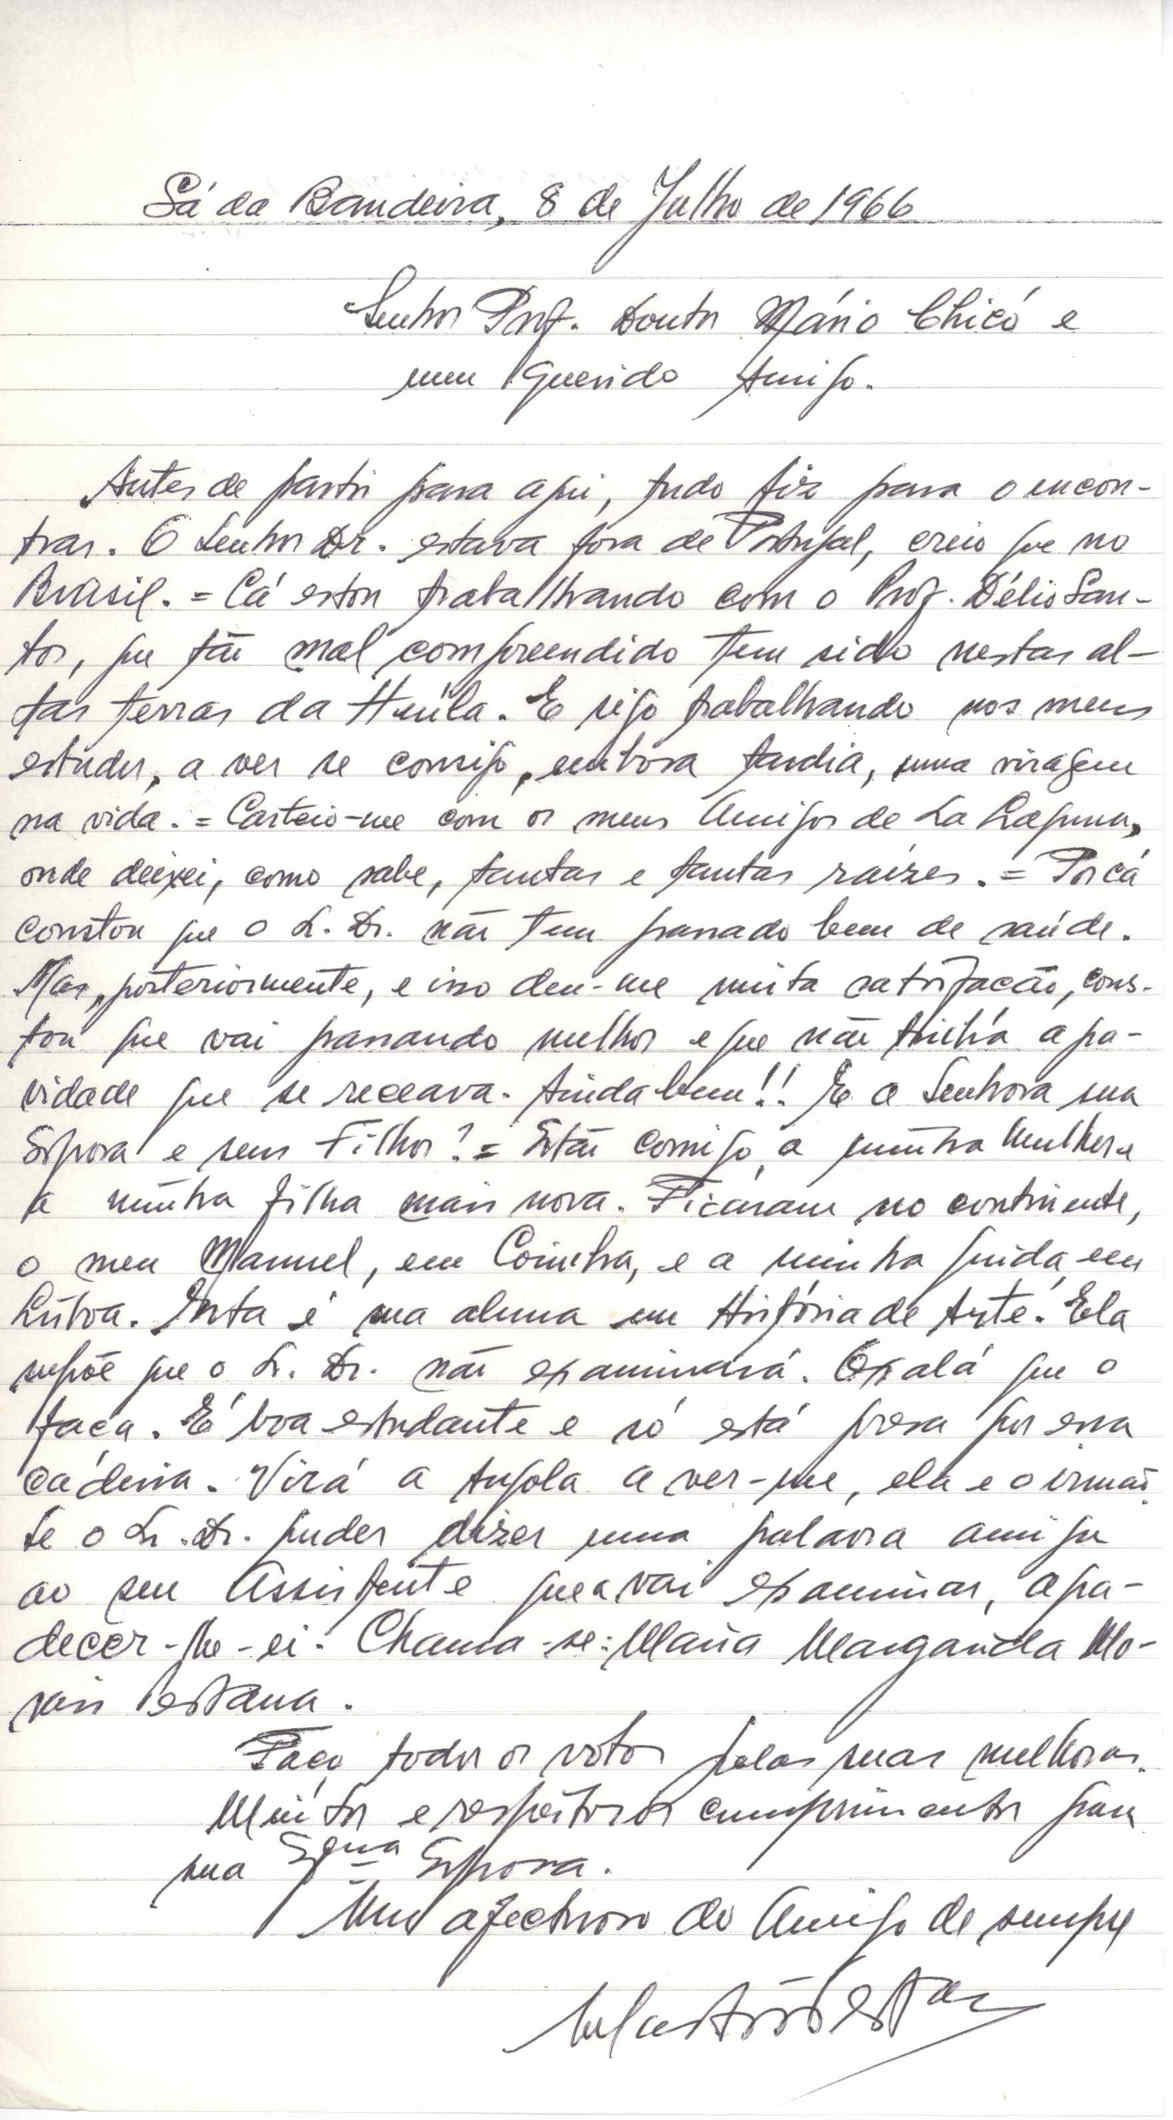 Sá da Bandeira, 8 de Julho de 1966
Senhor Prof. Doutor Mário Chicó e
meu Querido Amigo.
Antes de partir para aqui, tudo fiz para o encon-
trar. O Senhor Dr. estava fora de Portugal, creio que no
Brasil. = Cá estou trabalhando com o Prof. Délio San-
tos, que tão mal compreendido tem sido nestas al-
tas terras da Huíla. E sigo trabalhando nos meus
estudos, a ver se consigo, embora tardia, uma viragem
na vida. = Carteio-me com os meus Amigos de La Laguna,
onde deixei, como sabe, tantas e tantas raízes. = Por cá
constou que o S. Dr. não tem passado bem de saúde.
Mas, posteriormente, e isso deu-me muita satisfação, cons-
tou que vai passando melhor e que não tinha a gra-
vidade que se receava. Ainda bem!! E a Senhora sua
Esposa e seus Filhos? = Estão comigo, a minha Mulher e
a minha filha mais nova. Ficaram no continente,
o meu Manuel, em Coimbra, e a minha Guida em
Lisboa. Esta é sua aluna em História de Arte. Ela
supõe que o Sr. Dr. não examinará. Oxalá que o
faça. É boa estudante e só está presa por essa
cadeira. Virá a Angola a ver-me, ela e o irmão.
Se o Sr. Dr. puder dizer uma palavra amiga
ao seu Assistente que a vai examinar, agra-
decer-lhe-ei. Chama-se: Maria Margarida Mo-
rais Pestana.
Faço todos os votos pelas suas melhoras.
Muitos e respeitosos cumprimentos para
sua Esposa.
afectuoso do Amigo de sempre